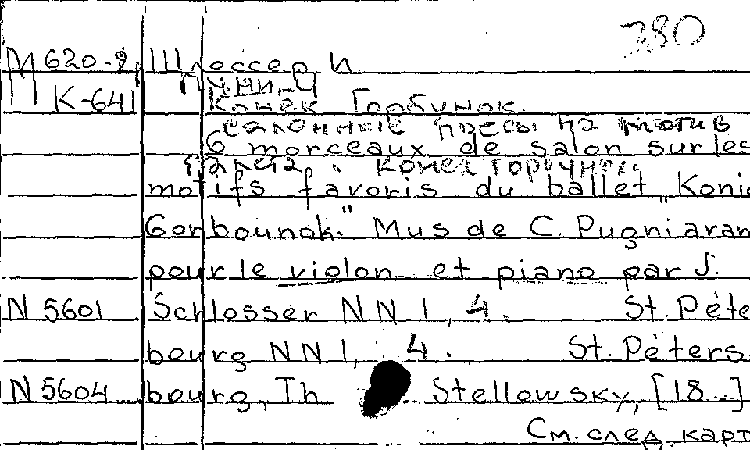 280
М 620-9, Шлоссер И
Пуни Ц
К-641 Конек Горбунок.
салонные пьесы на мотив
6 morceaux de salon sur les
балета. Конек Горбунок.
motifs favoris du ballet „Koni
Gorbounok." Mus de C. Pugni aran
pour le violon et piano par J.
N 5601 Schlosser NN 1, 4. St. Péte
bourg NN 1, 4. St. Péters
N 5604 bourg, Th. Stellowsky, [18..]
См. след. карт